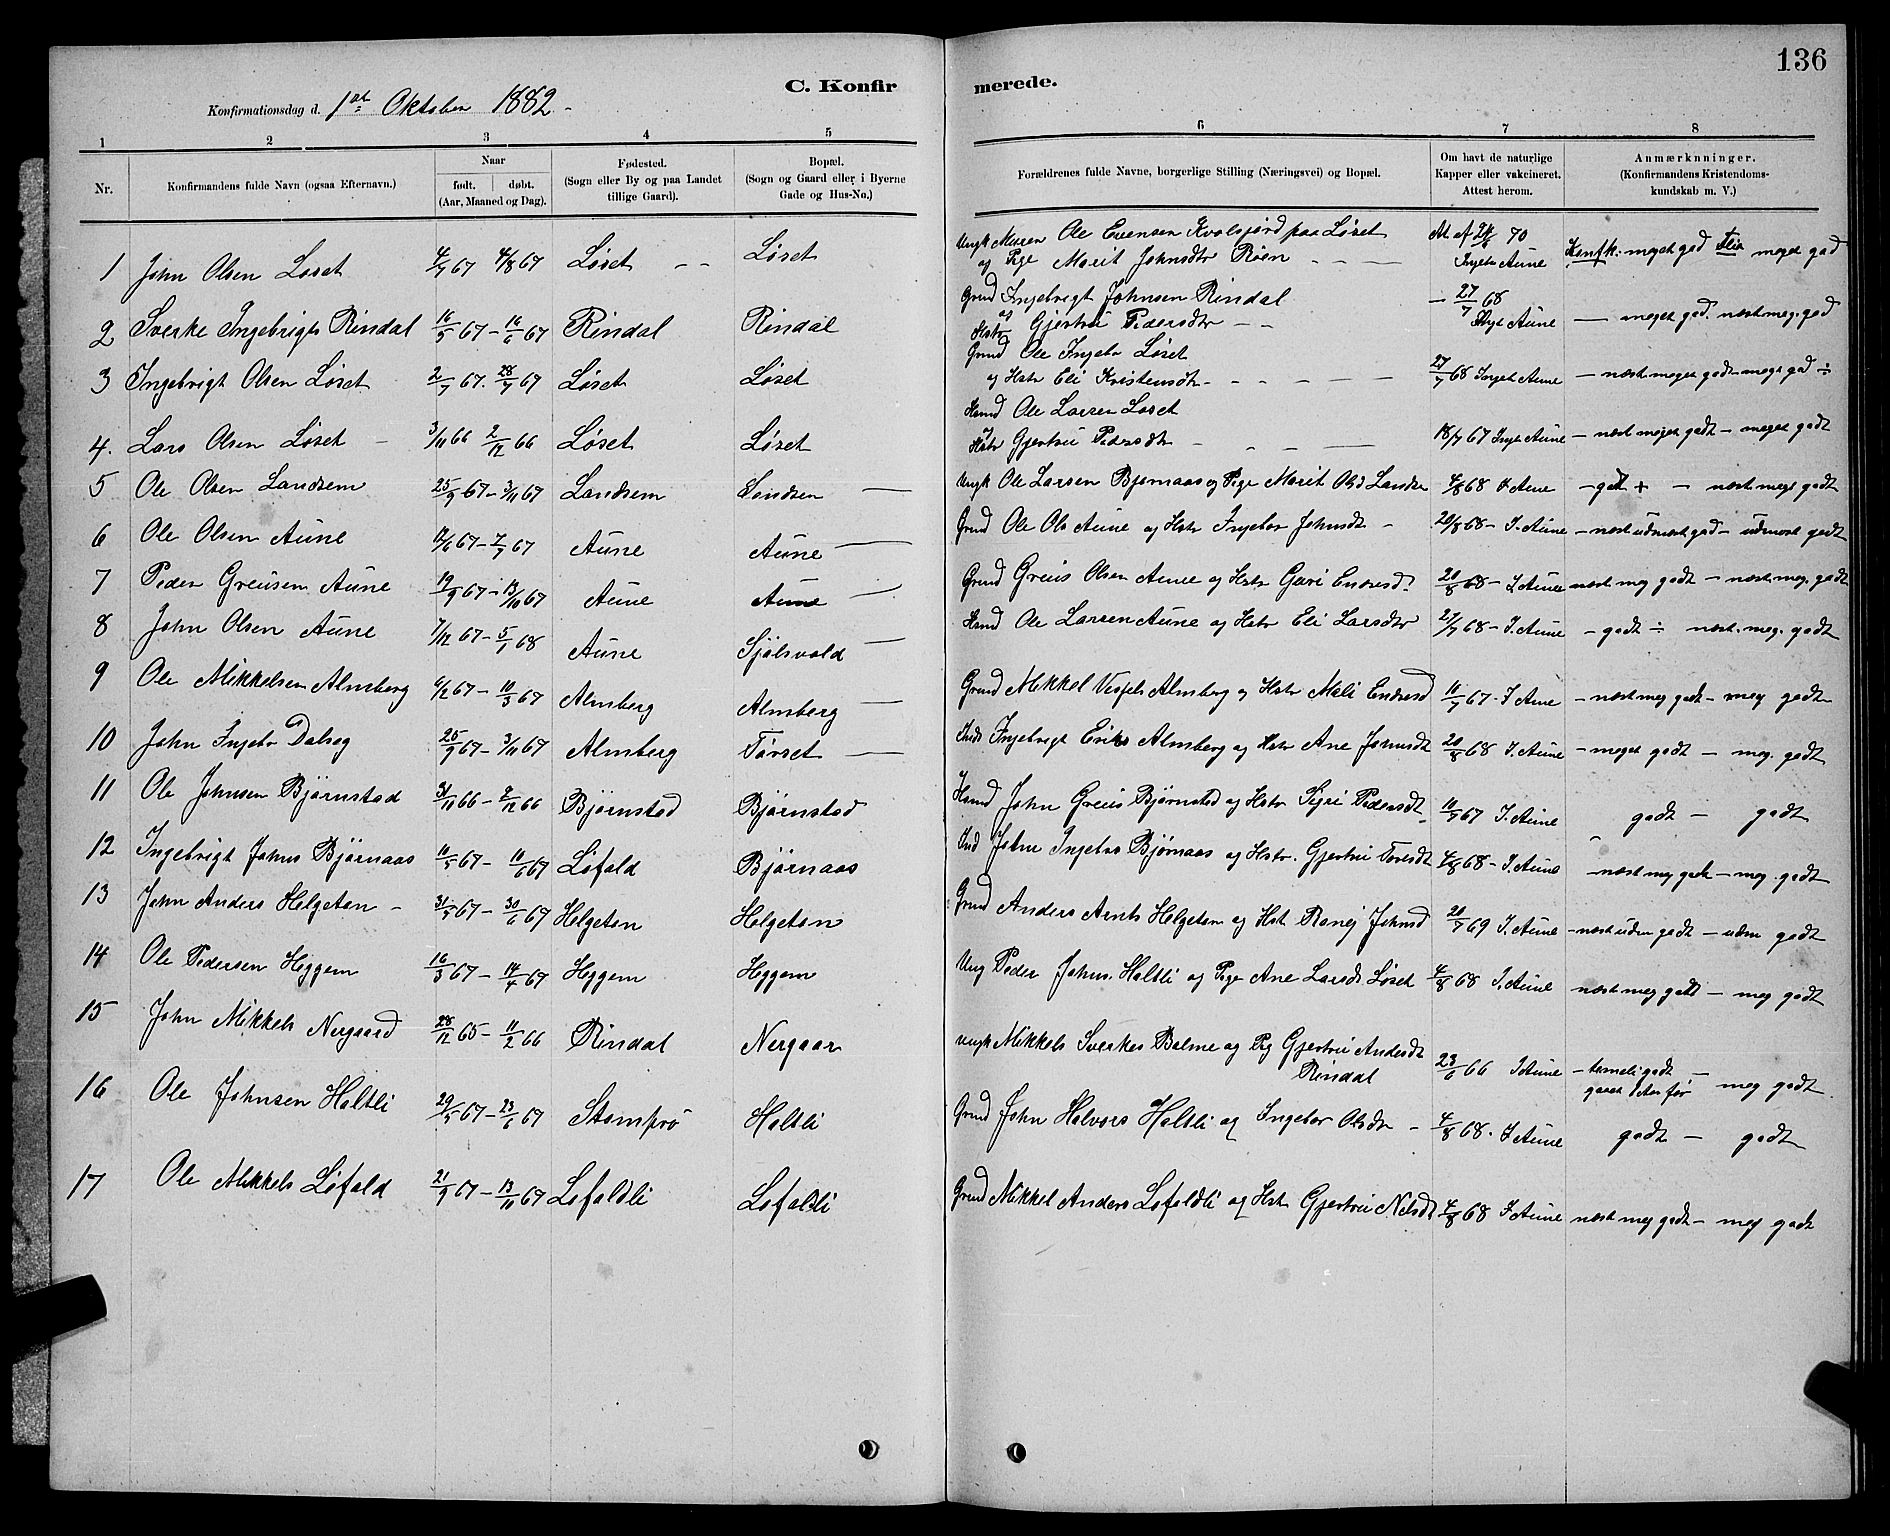 136
C. Konfirmerede.
Konfirmationsdag d. 1ste Oktober 1882.
1 2 3 4 5 6 7 8
Nr. Konfirmandens fulde Navn (ogsaa Efternavn.) Naar født. døbt. (Aar, Maaned og Dag). Fødested. (Sogn eller By og paa Landet tillige Gaard). Bopæl. (Sogn og Gaard eller i Byerne Gade og Hus-No.) Forældrenes fulde Navne, borgerlige Stilling (Næringsvei) og Bopæl. Om havt de naturlige Kapper eller vakcineret. Attest herom. Anmærkninger. (Konfirmandens Kristendomskundskab m. V.)
1 John Olsen Løset 4/7 67 4/8 67 Løset - - Løset Ungk Ole Evensen Kvalsjord paa Løset og Pige Marit Johnsdtr Röen At af 24/6 70 Ingebr Aune Kundsk. meget god Flid meget god
2 Sverke Ingebrigts Rindal 16/5 67 - 16/6 67 Rindal Rindal Grmd Ingebrigt Johnsen Rindal og Hstr Gjertru Pedersdtr - - - 27/7 68 Aune - meget god. næst meg. god
3 Ingebrigt Olsen Løset 2/7 67. 28/7 67 Løset Løset Grmd Ole Ingebr Løset og Hstr Eli Kristensdtr - 27/7 68 Ingeb Aune - næst meget godt - megt god ÷
4. Lars Olsen Løset - 3/11 66 2/12 66 Løset Løset Hsmd Ole Larsen Løset og Hstr Gjertru Pedersdtr - 18/7 67 Ingb Aune - næst meget godt - meget godt
5 Ole Olsen Landsem 25/9 67 - 3/11 67 Landsem Ungk Ole Larsen Bjørnaas og Pige Marit Olsd Landse 4/8 68 I Aune - godt + - næst megt godt
6 Ole Olsen Aune 12/6 67 - 7/7 67 Aune Aune Grmd Ole Ols Aune og Hstr Ingebor Johnsdt - 20/8 68 - I. Aune - næst udmærk god - udmært godt
7 Peder Greusen Aune 19/9 67 - 13/10 67 Aune Aune Grmd Greus Olsen Aune og Hstr Guri Endresd. 20/8 68 - I. Aune næst meg godt - næst. meg. godt
8 John Olsen Aune 7/12 67 - 5/1 68 Aune Sjölsvold Hsmd Ole Larsen Aune og Hstr Eli Larsdtr 27/7 68 - I. Aune - godt ÷ næst. meg. godt
9 Ole Mikkelsen Almberg 6/2 67 - 10/3 67 Almberg Almberg Grmd Mikkel Almberg og Hstr Mali Endresd 11/7 67 - I Aune - næst meg godt - meg godt
10 John Ingebr Dalseg 25/9 67 - 3/11 67 Almberg Tørset Inds Ingebrigt Eriks Almberg og Hstr Ane Johnsdt 20/8 68 I. Aune - meget godt - meg. godt
11 Ole Johnsen Bjørnstad 31/11 66 - 2/12 66 Bjørnstad Bjørnstad Hsmd John Greus Bjørnstad og Hstr Sigri Pedersdt 11/7 67 I. Aune godt - godt
12 Ingebrigt Johns Bjørnaas 11/5 67 - 11/6 67 Løfald Bjørnaas Ind John Ingebr Bjørnaas og Hstr. Gjertru Toresdt 4/8 68 - I. Aune - næst meg godt - meg. godt
13 John Anders Helgeton - 31/5 67 - 30/6 67 Helgeton Helgeton Grmd Anders Arnts Helgeton og Hst Ranej Johnsd 21/7 69 I. Aune - næst udm godt - udm godt
14 Ole Pedersen Heggem 16/3 67 - 14/4 67 Heggem Heggem Ung Peder Johns. Holtli og Pige Ane Larsdt Løset 4/8 68 I. Aune næst meg godt - meg godt
15 John Mikkels Nergaard 28/12 65 - 11/2 66 Rindal Nergaar Ungk Mikkels Sverkes Bolme og Pig Gjertru Andersdt Rindal 23/6 66 I Aune - temeli godt - meg godt.
16 Ole Johnsen Holtli 29/5 67 - 23/6 67 Stomprö Holtli Grmd John Halvors Holtli og Ingebor Olsdtr - 4/8 68. I Aune godt - godt
17 Ole Mikkels Løfald 21/9 67 - 13/10 67 Løfaldli Løfaldli Grmd Mikkel Anders Løfaldli og Hst Gjertru Nelsdt 4/8 68 I. Aune næst meg godt - meg godt